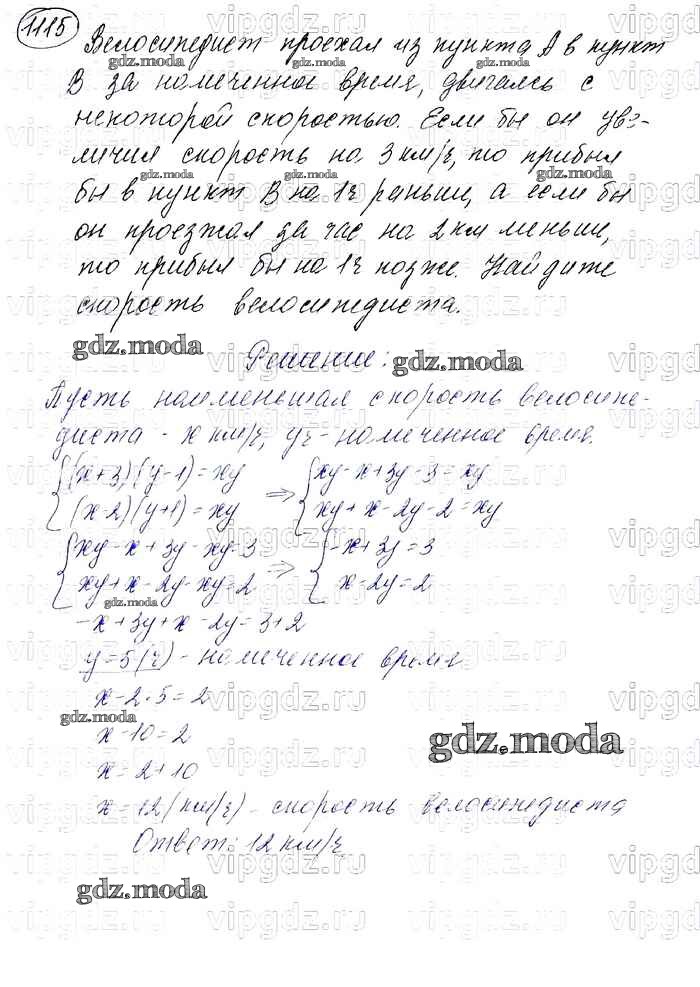 1115
Велосипедист проехал из пункта А в пункт
gdz.moda gdz.moda
В за намеченное время, двигаясь с
некоторой скоростью. Если бы он уве-
личил скорость на 3 км/ч, то прибыл
gdz.moda gdz.moda
бы в пункт В на 1ч раньше, а если бы
он проезжал за час на 2 км меньше,
то прибыл бы на 1ч позже. Найдите
скорость велосипедиста.
gdz.moda Решение: gdz.moda
Пусть наименьшая скорость велосипе-
диста - х км/ч, уч - намеченное время.
{(x+3)(y-1)=xy => {xy-x+3y-3=xy
(x-2)(y+1)=xy xy+x-2y-2=xy
{xy-x+3y-xy=3 => {-x+3y=3
xy+x-2y-xy=2 x-2y=2
gdz.moda
-x+3y+x-2y=3+2
y=5(ч) - намеченное время
x-2·5=2
gdz.moda
x-10=2
gdz.moda
x=2+10
x=12(км/ч) - скорость велосипедиста
Ответ: 12 км/ч
gdz.moda
vipgdz.ru